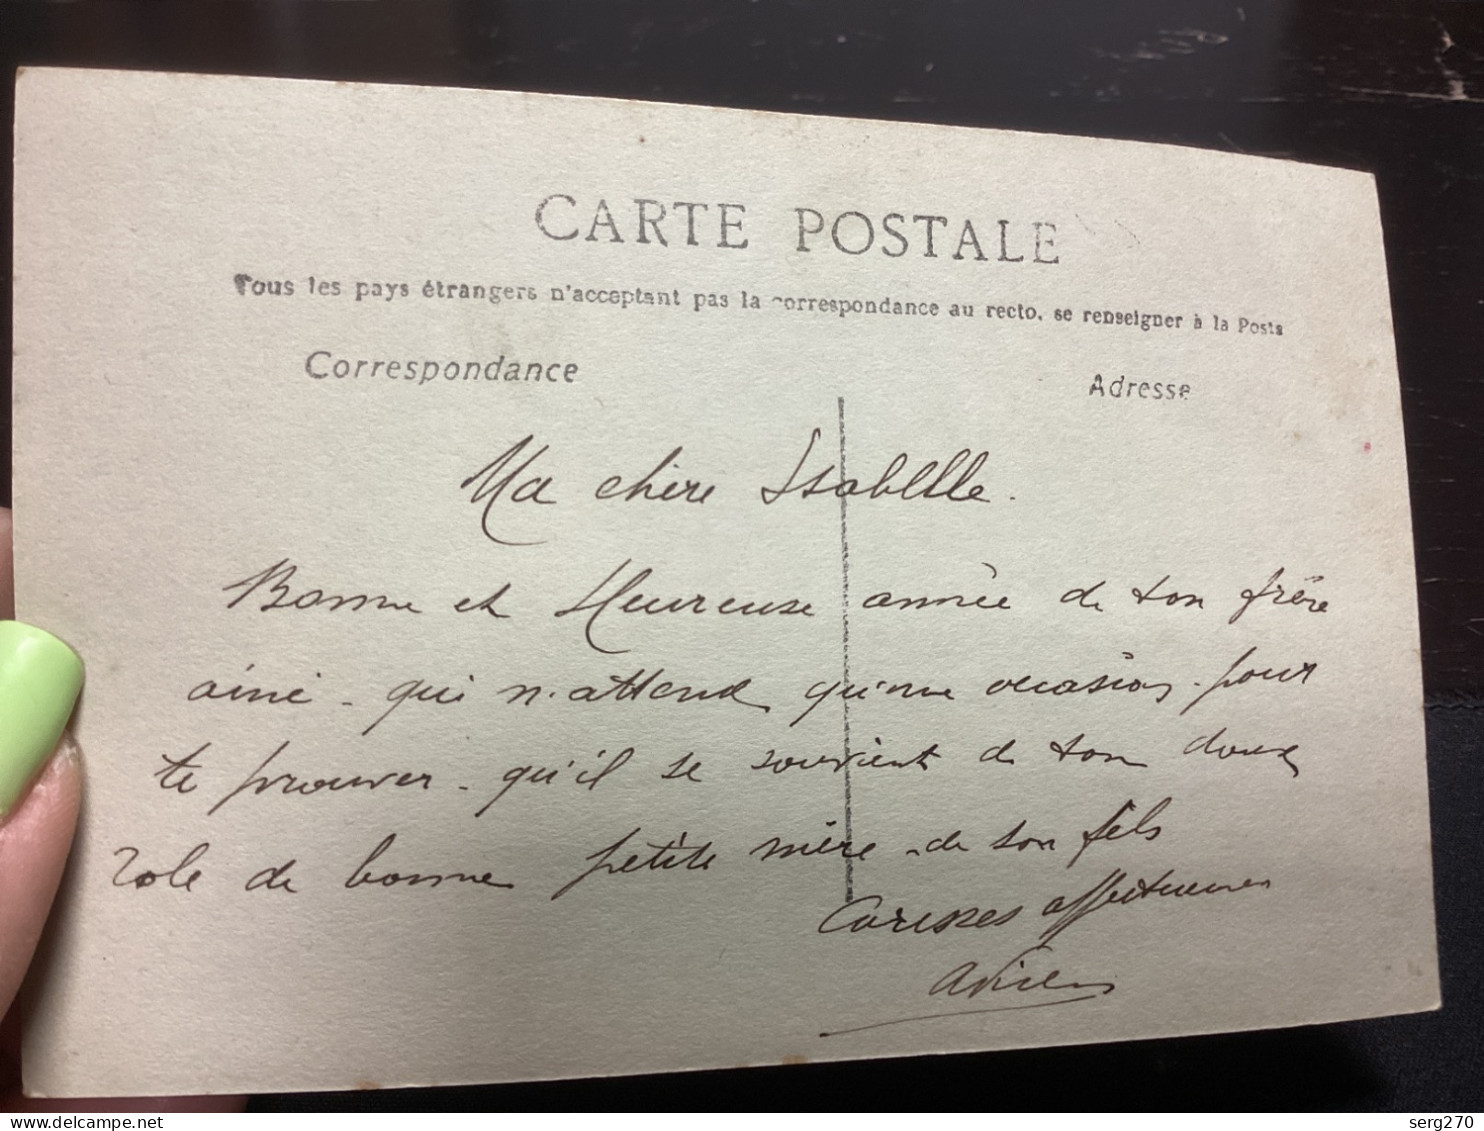 CARTE POSTALE
Tous les pays étrangers n'acceptent pas la correspondance au recto, se renseigner à la Poste
Correspondance
Adresse
Ma chère Isabelle.
Bonne et Heureuse année de ton frère
ainé - qui n'attend qu'une occasion pour
te prouver - qu'il se souvient de ton doux
rôle de bonne petite mère - de ton fils
Caresses affectueuses
Adrien
serg270